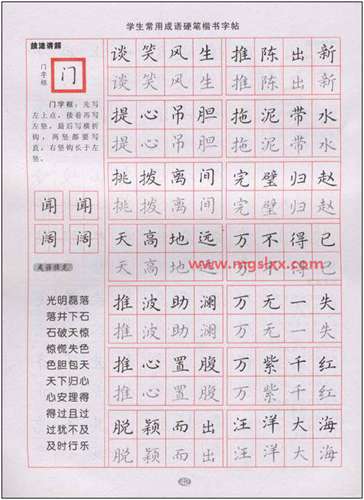 学生常用成语硬笔楷书字帖
技法讲解
门字框
门
门字框：先写
左上点，接着再写
左竖，最后写横折
钩，两竖都要写
直，右竖钩长于左
竖。
闻 闻
阔 阔
成语填充
光明磊落
落井下石
石破天惊
惊慌失色
色胆包天
天下归心
心安理得
得过且过
过犹不及
及时行乐
谈笑风生 推陈出新
谈笑风生 推陈出新
提心吊胆 拖泥带水
提心吊胆 拖泥带水
挑拨离间 完璧归赵
挑拨离间 完璧归赵
天高地远 万不得已
天高地远 万不得已
www.mgslxx.com
推波助澜 万无一失
推波助澜 万无一失
推心置腹 万紫千红
推心置腹 万紫千红
脱颖而出 汪洋大海
脱颖而出 汪洋大海